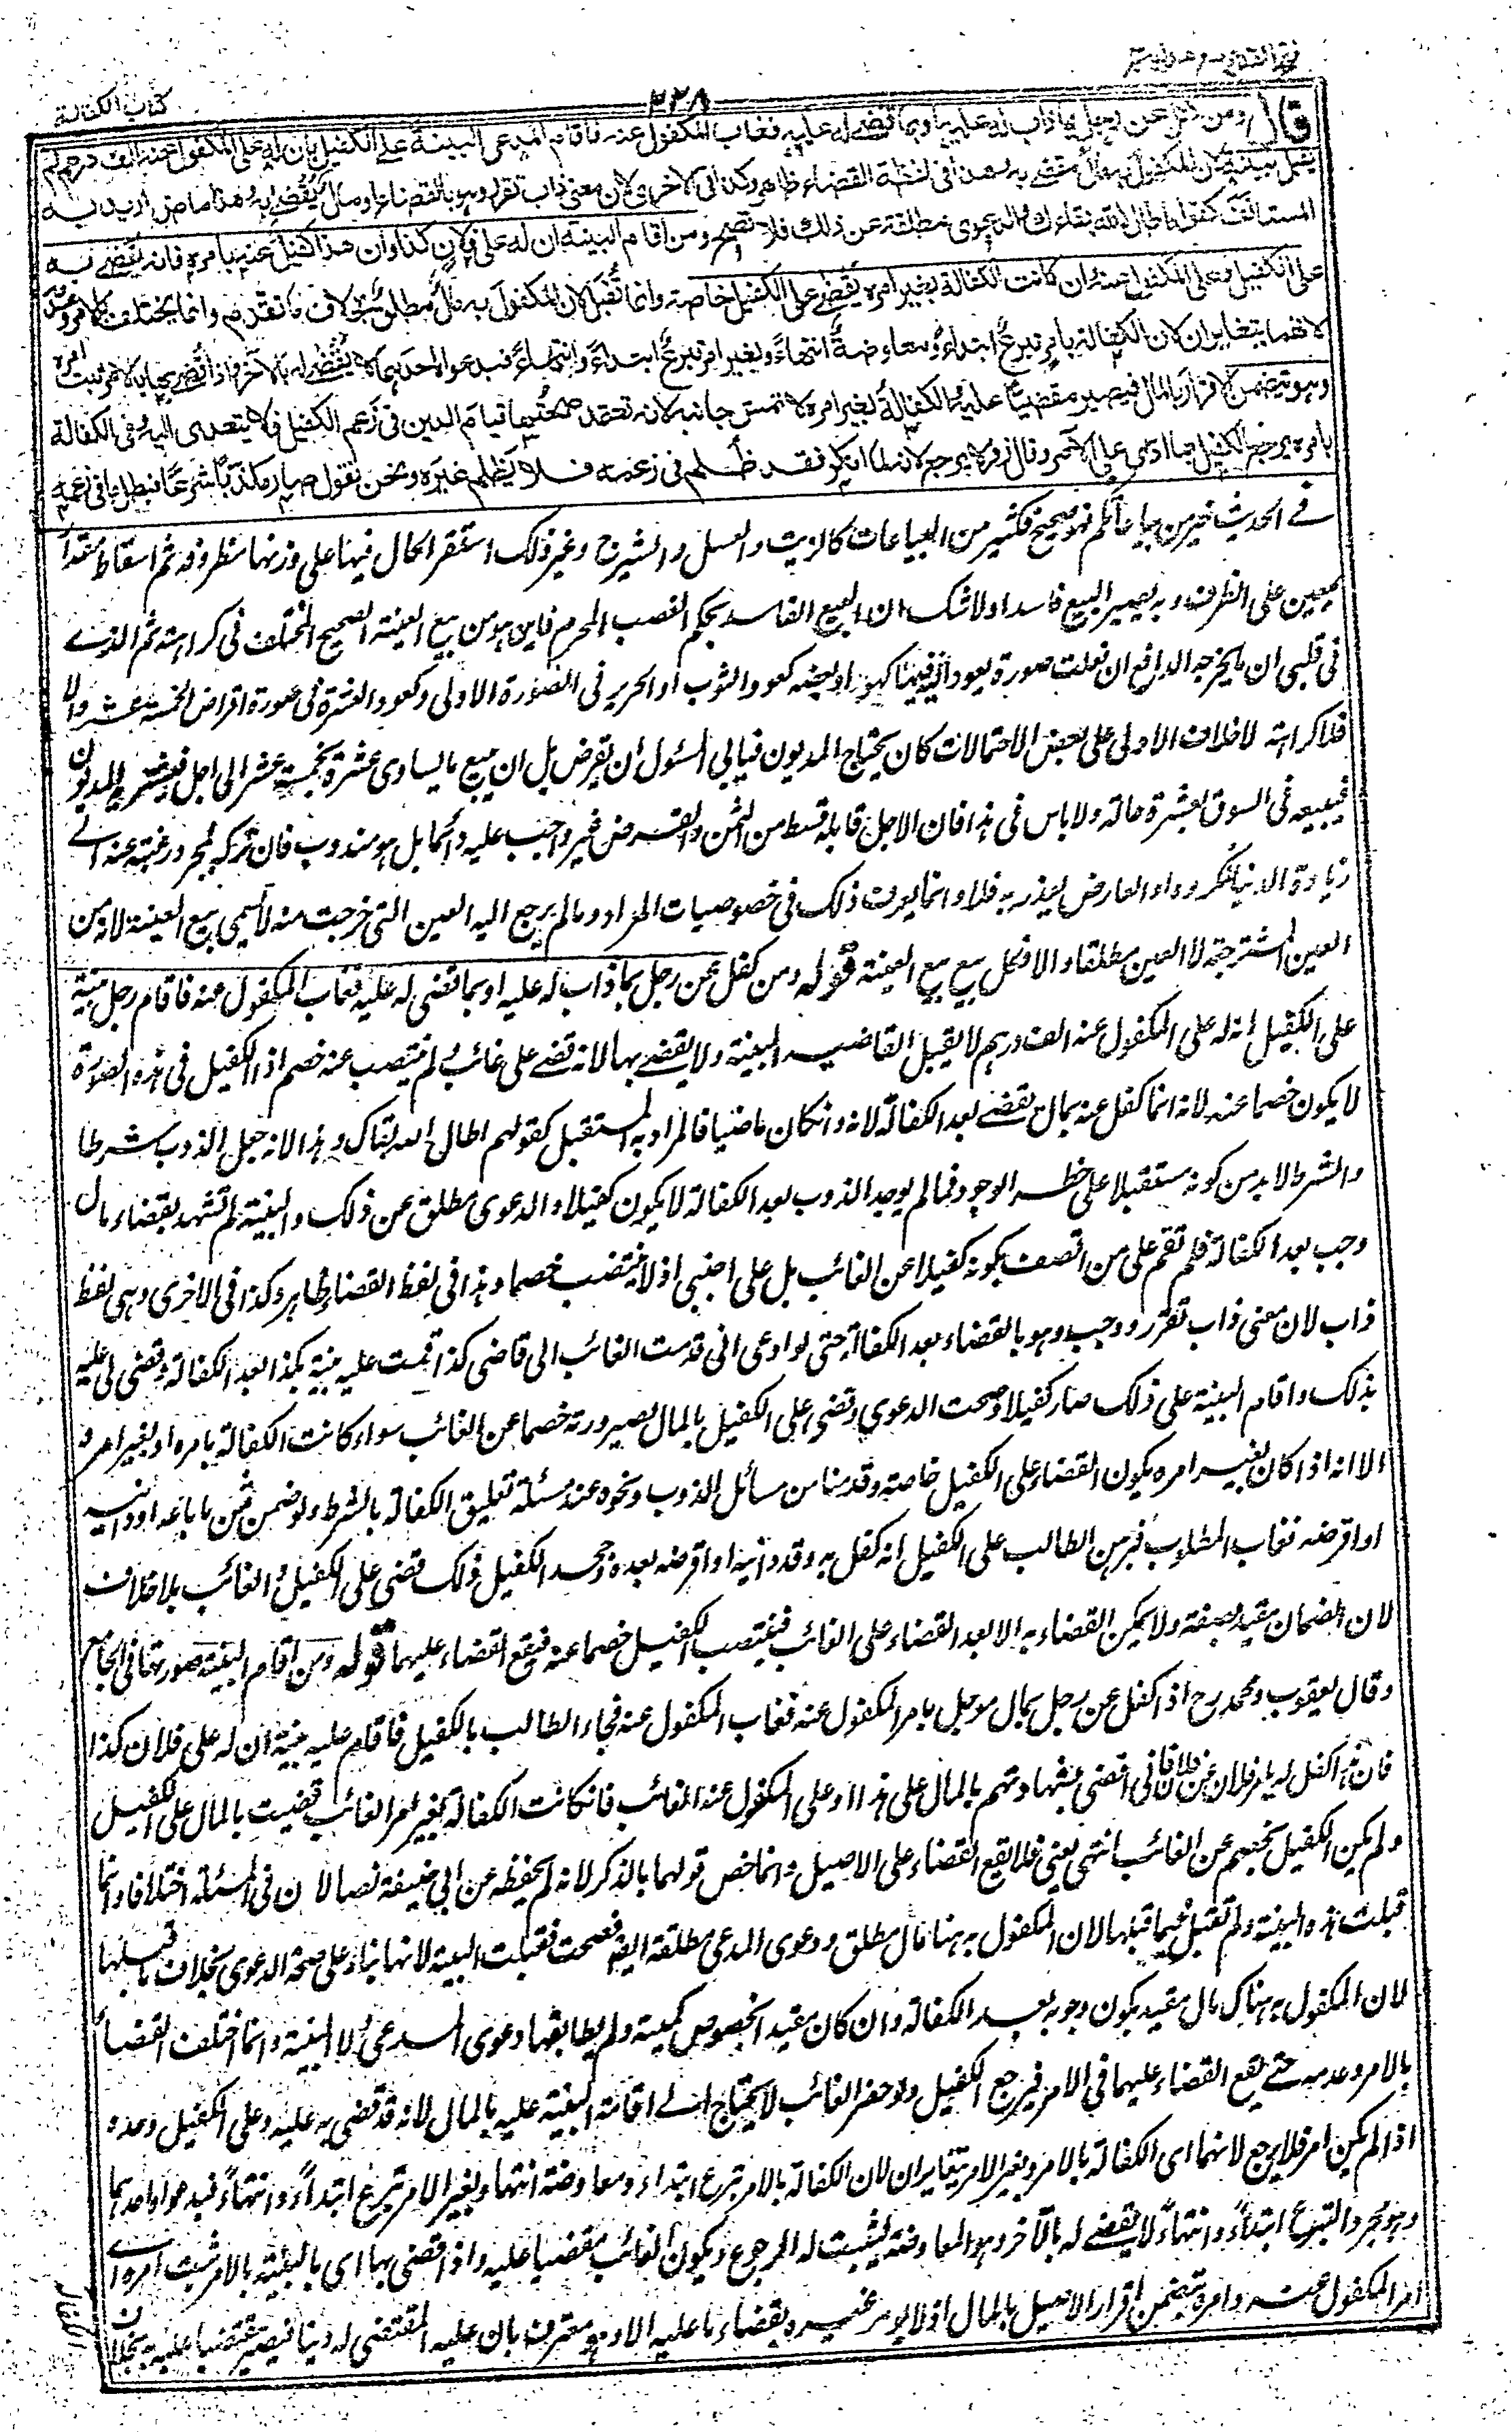 فتح القدير مع هدايه جلد
٢٢٨
كتاب الكفالة
قال ومن كفل عن رجل بما ذاب له عليه او بما قضى له عليه فغاب المكفول عنه فاقام المدعى البينة على الكفيل بان له على المكفول عنه الف درهم لم
يقبل بينته لان المكفول به مال مقضى به وهذا فى لفظة القضاء ظاهر وكذا فى الاخرى لان معنى ذاب تقرر وهو بالقضاء او مال يقضى به وهذا ماض اريد به
المستانف كقوله اطال الله بقاءك فالدعوى مطلقة عن ذلك فلا تصح ومن اقام البينة ان له على فلان كذا وان هذا كفيل عنه بامره فانه يقضى به
على الكفيل وعلى المكفول عنه وان كانت الكفالة بغير امره يقضى على الكفيل خاصة وانما تقبل لان المكفول به مال مطلق بخلاف ما تقدم وانما يختلف بالامر وعدمه
لانهما يتغايران لان الكفالة بامر تبرع ابتداء ومعاوضة انتهاء وبغير امر تبرع ابتداء وانتهاء فبدعواه احدهما لا يقضى له بالآخر واذا قضى بها بالامر ثبت امره
وهو يتضمن الاقرار بالمال فيصير مقضيا عليه والكفالة بغير امره لا تمس جانبه لانه تعتمد صحتها قيام الدين فى زعم الكفيل فلا يتعدى اليه وفى الكفالة
بامره يرجع الكفيل بما ادى على الآمر وقال زفر لا يرجع لانه لما انكر فقد ظلم فى زعمه فلا يظلم غيره ونحن نقول صار مكذبا شرعا فبطل ما فى زعمه
فى الحديث خير من بياعاتكم فهو صحيح فكثير من البياعات كالزيت والعسل والشيرج وغير ذلك استقر الحال فيها على وزنها مظروفة ثم اسقاط مقدار
معين على الظرف وبه يصير البيع فاسدا ولا شك ان البيع الفاسد بحكم الغصب المحرم فاين هو من بيع العينة الصحيح المختلف فى كراهته ثم الذى
فى قلبى ان ما يخرجه الدافع ان فعلت صورة يعود اليه فيها هو او بعضه كعود الثوب او الحرير فى الصورة الاولى وكعود العشرة فى صورة اقراض الخمسة عشر والا
فلا كراهة الا خلاف الاولى على بعض الاحتمالات كان يحتاج المديون فيابى المسئول ان يقرض بل ان يبيع ما يساوى عشرة بخمسة عشر الى اجل فيشتريه المديون
فيبيعه فى السوق بعشرة حالة ولا باس فى هذا فان الاجل قابله قسط من الثمن والقرض غير واجب عليه دائما بل هو مندوب فان تركه لمجرد رغبة عنه الى
زيادة الدنيا فمكروه او لعارض يعذر به فلا وانما يعرف ذلك فى خصوصيات المواد وما لم يرجع اليه العين التى خرجت منه لا يسمى بيع العينة لانه من
العين المسترجعة لا العين مطلقا والا فكل بيع بيع العينة قوله ومن كفل عن رجل بما ذاب له عليه او بما قضى له عليه فغاب المكفول عنه فاقام رجل بينة
على الكفيل انه له على المكفول عنه الف درهم لا يقبل القاضى البينة ولا يقضى بها لانه قضى على غائب لم ينتصب عنه خصم اذ الكفيل فى هذه الصورة
لا يكون خصما عنه لانه انما كفل عنه بمال يقضى بعد الكفالة لانه وانكان ماضيا فالمراد به المستقبل كقولهم اطال الله بقاك وهذا لانه جعل الذوب شرطا
والشرط لا بد من كونه مستقبلا على خطر الوجود فما لم يوجد الذوب بعد الكفالة لا يكون كفيلا والدعوى مطلق عن ذلك والبينة لم تشهد بقضاء مال
وجب بعد الكفالة فلم تقم على من اتصف بكونه كفيلا عن الغائب بل على اجنبى اذ لا ينتصب خصما وهذا فى لفظ القضاء ظاهر وكذا فى الاخرى وهى لفظ
ذاب لان معنى ذاب تقرر ووجب وهو بالقضاء بعد الكفالة حتى لو ادعى انى قدمت الغائب الى قاضى كذا واقمت عليه بينة بكذا بعد الكفالة وقضى لى عليه
بذلك واقام البينة على ذلك صار كفيلا وصحت الدعوى وقضى على الكفيل بالمال لصيرورته خصما عن الغائب سواء كانت الكفالة بامره او بغير امره
الا انه اذا كان بغير امره يكون القضاء على الكفيل خاصة وقدمنا من مسائل الذوب ونحوه عند مسئلة تعليق الكفالة بالشرط ولو ضمن ثمن ما باعه او داينه
او اقرضه فغاب المطلوب فبرهن الطالب على الكفيل انه كفل به وقد داينه او اقرضه بعده وجحد الكفيل ذلك قضى على الكفيل والغائب بلا خلاف
لان الضمان مقيد بصفة ولا يمكن القضاء به الا بعد القضاء على الغائب فينتصب الكفيل خصما عنه فيقع القضاء عليهما قوله ومن اقام البينة صورتها فى الجامع
وقال يعقوب ومحمد رح اذا كفل عن رجل بمال موجل بامر المكفول عنه فغاب المكفول عنه فجاء الطالب بالكفيل فاقام عليه بينة ان له على فلان كذا
فان هذا كفل له بامر فلان عن فلان فانى اقضى بشهادتهم بالمال على هذا وعلى المكفول عنه الغائب فانكانت الكفالة بغير امر الغائب قضيت بالمال على الكفيل
ولم يكن الكفيل بخصم عن الغائب انتهى يعنى فلا يقع القضاء على الاصيل وانما خص قولهما بالذكر لانه لم يحفظه عن ابى حنيفة نصا لا ان فى المسئلة اختلافا وانما
قبلت هذه البينة ولم تقبل فيما قبلها لان المكفول به هنا مال مطلق ودعوى المدعى مطلقة ايضا فصحت فقبلت البينة لانها بناء على صحة الدعوى بخلاف ما قبلها
لان المكفول به هناك مال مقيد بكون وجوبه بعد الكفالة وان كان مقيدا بخصوص كمية ولم يطابقها دعوى المدعى ولا البينة وانما اختلف القضاء
بالامر وعدمه حتى يقع القضاء عليهما فى الامر فيرجع الكفيل ولو حضر الغائب لا يحتاج الى اقامة البينة عليه بالمال لانه قد قضى به عليه وعلى الكفيل وحده
اذا لم يكن امر فلا يرجع لانهما اى الكفالة بالامر وبغير الامر يتغايران لان الكفالة بالامر تبرع ابتداء ومعاوضة انتهاء وبغير الامر تبرع ابتداء وانتهاء فبدعواه احدهما
وهو مجرد التبرع ابتداء وانتهاء لا يقضى له بالآخر وهو المعاوضة ليثبت له الرجوع ويكون الغائب مقضيا عليه واذا قضى بها اى بالبينة بالامر ثبت امره اى
امر المكفول عنه وامره يتضمن اقرار الاصيل بالمال اذ لا يومر غيره بقضاء ما عليه الا وهو معترف بان عليه المقتضى له دينا فيصير مقضيا عليه بخلاف